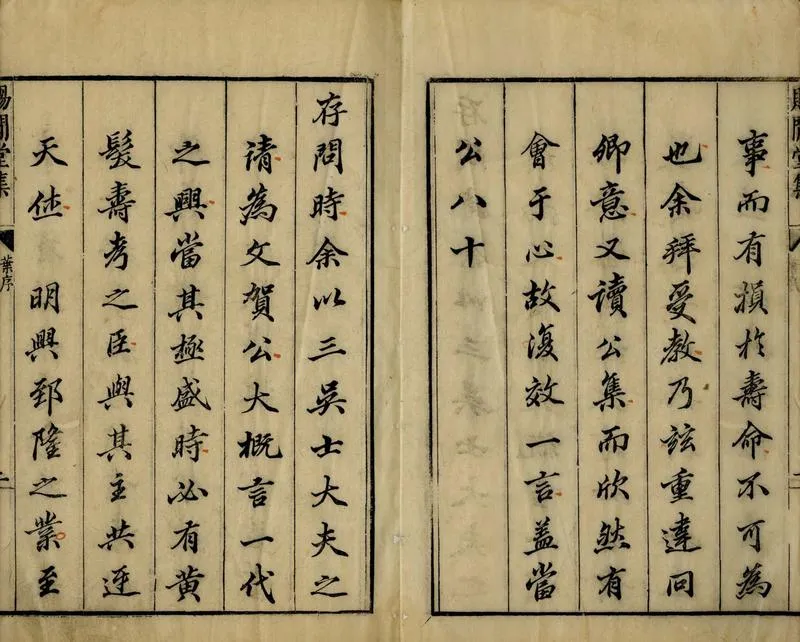 事而有損於壽命不可為
也余拜受教乃茲重違同
卿意又讀公集而欣然有
會于心故復效一言盖當
公八十
存問時余以三吳士大夫之
請為文賀公大概言一代
之興當其極盛時必有黃
髮壽考之臣與其主共迓
天庥 明興郅隆之業至
賜閒堂集
葉序
二